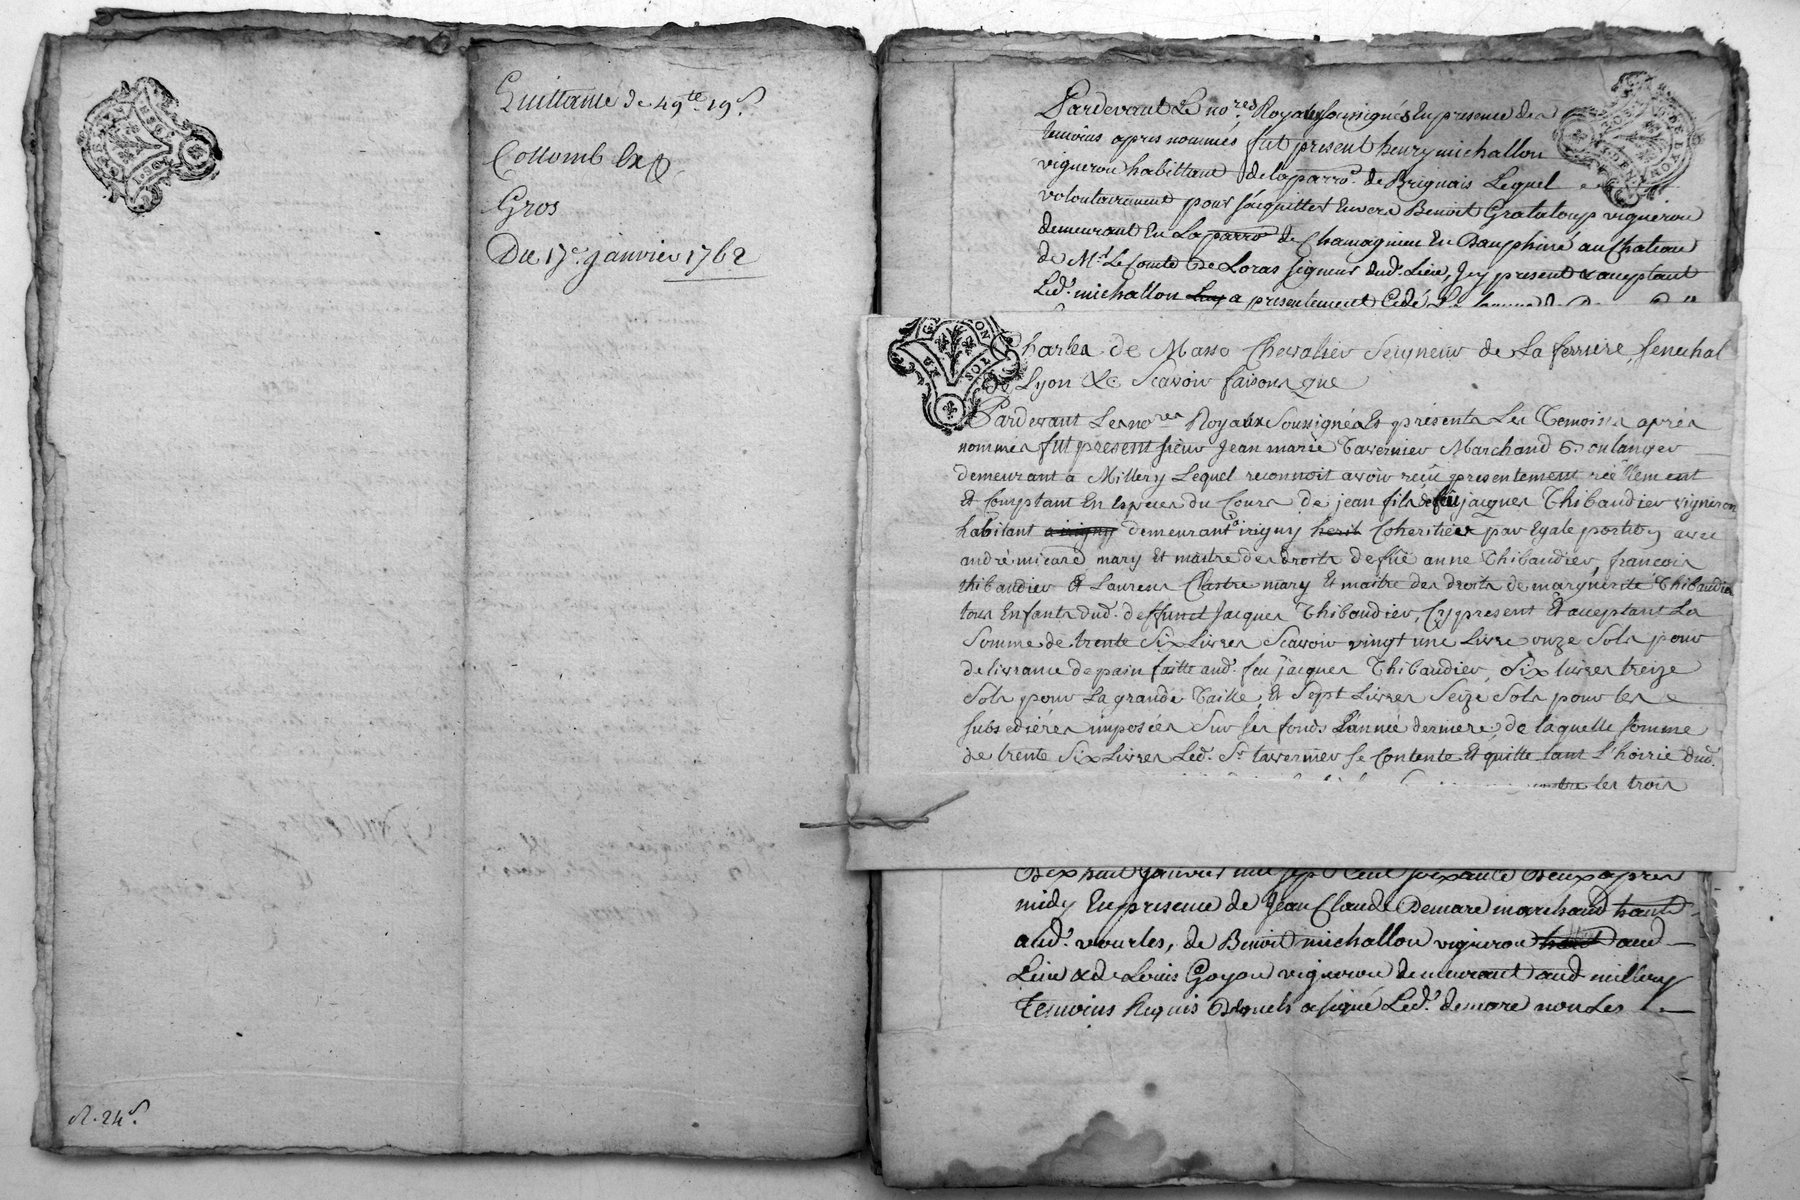 Quittance de 49te. 19s.
Collomb
Gros
Du 17e. janvier 1762
r. 24s.
Pardevant Le nores Royaux soussignés En presence des
temoins apres nommés fut present henry michallon
vigneron habittant de la parro. de Brignais Lequel
volontairement pour s'acquitter Envers Benoit Grataloup vigneron
demeurant En La parro de Chamagnieu En Dauphiné au Chateau
de Mr. Le Comte De Loras seigneur dud. Lieu, Icy present & aceptant
Led. michallon a presentement Cedé La somme de
Charles de Masso Chevalier Seigneur de La ferriere, senechal
de Lyon &c Scavoir faisons que
Pardevant Les nores Royaux Soussignés Et présents Les Temoins après
nommés fut présent sieur Jean marie Tavernier Marchand Boulanger
demeurant a Millery Lequel reconnoit avoir reçû presentement réellement
Et Comptant En Especes du Cours de jean fils de feu jacques Thibaudier vigneron
habitant a irigny demeurant a irigny herit Coheritier par Egale portion avec
andré micard mary Et maitre des droits de füe anne Thibaudier, francois
thibaudier Et Laurens Clastre mary Et maitre des droits de marguerite Thibaudier
tous Enfants dud. deffunct Jacques Thibaudier, Cy present Et aceptant La
Somme de trente Six Livres Scavoir vingt une Livre onze Sols pour
delivrance de pain faitte aud. feu jacques Thibaudier, Six Livres treize
Sols pour La grande Taille, Et Sept Livres Seize Sols pour les
subsediéres imposées Sur ses fonds L'année derniere, de laquelle somme
de trente Six Livres Led. Sr. tavernier se Contente Et quitte tant l'hoirie dud.
contre les trois
Dix huit Janvier mil sept Cent soixante Deux apres
midy En presence de Jean Claude Demare marchand hant
aud. vourles, de Benoit michallon vigneron hant aud
Lieu & de Louis Goyon vigneron demeurant aud millery
temoins Requis Desquels a signé Led. demare non Les